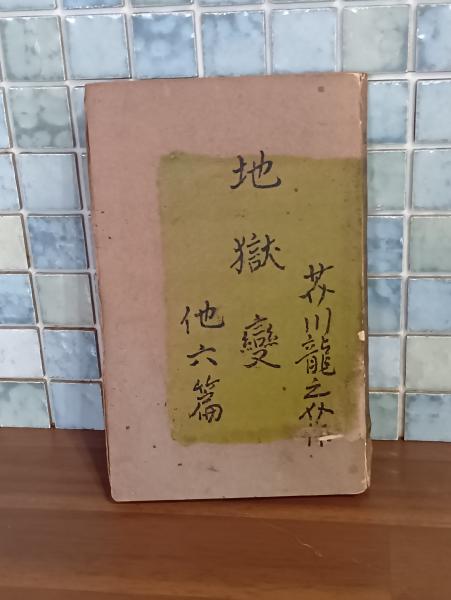 芥川龍之介作
地獄變
他六篇